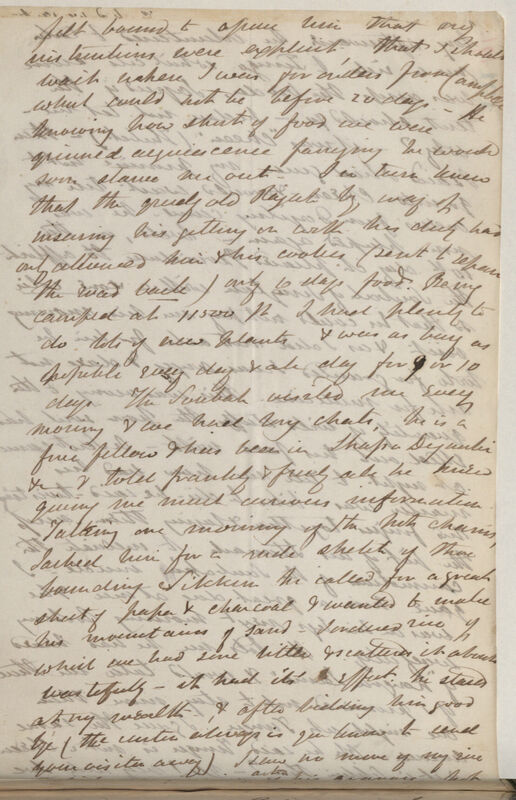 felt bound to assure him that our
instructions were explicit, that I should
wait where I was for orders from Campbell
what could not be before 20 days. He
knowing how short of food we were
grinned acquiescence fancying he would
soon starve me out. I in turn knew
that the greedy old Rajah by way of
insuring his getting on with his duty had
only allowed him & his coolies (sent to repair
the road back) only 10 days food. Being
camped at 11500 ft I had plenty to
do lots of new plants & was as busy as
possible every day & all day for 9 or 10
days. The Soubah visited me every
morning & we had long chats, he is a
fine fellow & has been in Lhassa Digarchi
& & told frankly & freely all he knew
giving me much curious information.
Talking one morning of the Mts chains,
I asked him for a rude sketch of those
bounding Sikkim he called for a great
sheet of paper & charcoal & wanted to make
his mountains of sand. I ordered rice of
which we had some little & scattered it about
wastefully - it had its effect. he stared
at my wealth, & after bidding him good
bye (the custom always is you know to send
your visitor away) I saw no more of my rice